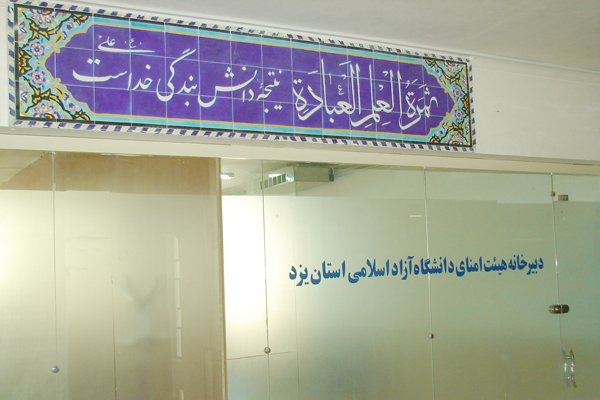 ثمرة العلم العبادة نتیجه دانش بندگی خداست علی (ع)
دبیرخانه هیئت امنای دانشگاه آزاد اسلامی استان یزد